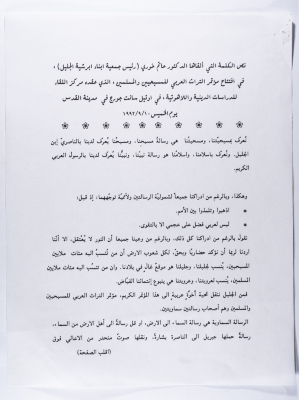 نص الكلمة التي ألقاها الدكتور حاتم خوري (رئيس جمعية ابناء ابرشية الجليل)،
في افتتاح مؤتمر التراث العربي للمسيحيين والمسلمين، الذي عقده مركز اللقاء
للدراسات الدينية واللاهوتية، في اوتيل سانت جورج في مدينة القدس
يوم الخميس ١٩٩٢/٩/١٠
نُعرف بمسيحيتنا، ومسيحيتنا هي رسالةُ مسيحنا، ومسيحنا يُعرف لدينا بالناصري إبن
الجليل. ونُعرف باسلامنا، واسلامنا هو رسالة نبيّنا، ونبيُّنا يُعرف لدينا بالرسول العربي
الكريم.
وهكذا، وبالرغم من ادراكنا جميعاً لشموليّة الرسالتين ولأمميّة توجُّههما، إذ قيل:
اذهبوا وتلمذوا بين الأمم.
ليس لعربي فضل على عجمي الا بالتقوى.
نقول بالرغم من ادراكنا كل ذلك، وبالرغم من وعينا جميعاً أن النور لا يُعتقل، الا أننا
اردنا لها أن تؤكد حضارياً وبحق، لكل شعوب الارض أن من تُنسبُ اليه مئات ملايين
المسيحيين، يُنسب لجليلنا، وجليلنا هو موقعٌ غالٍ في بلادنا. وان من تنسبُ اليه مئات ملايين
المسلمين، يُنسب لعروبتنا، وعروبتنا هي ينبوع إنتمائنا الفيّاض.
فمن الجليل ننقل تحية أخوّةٍ عربيةٍ الى هذا المؤتمر الكريم، مؤتمر التراث العربي للمسيحيين
والمسلمين وهم أصحاب رسالتين سماويتين.
الرسالة السماوية هي رسالة السماء الى الارض، او قل رسالةٌ الى أهل الارض من السماء.
رسالةٌ حملها جبريل الى الناصرة بشارةً، ونقلها صوتٌ منحدر من الاعالي فوق
(اقلب الصفحة)